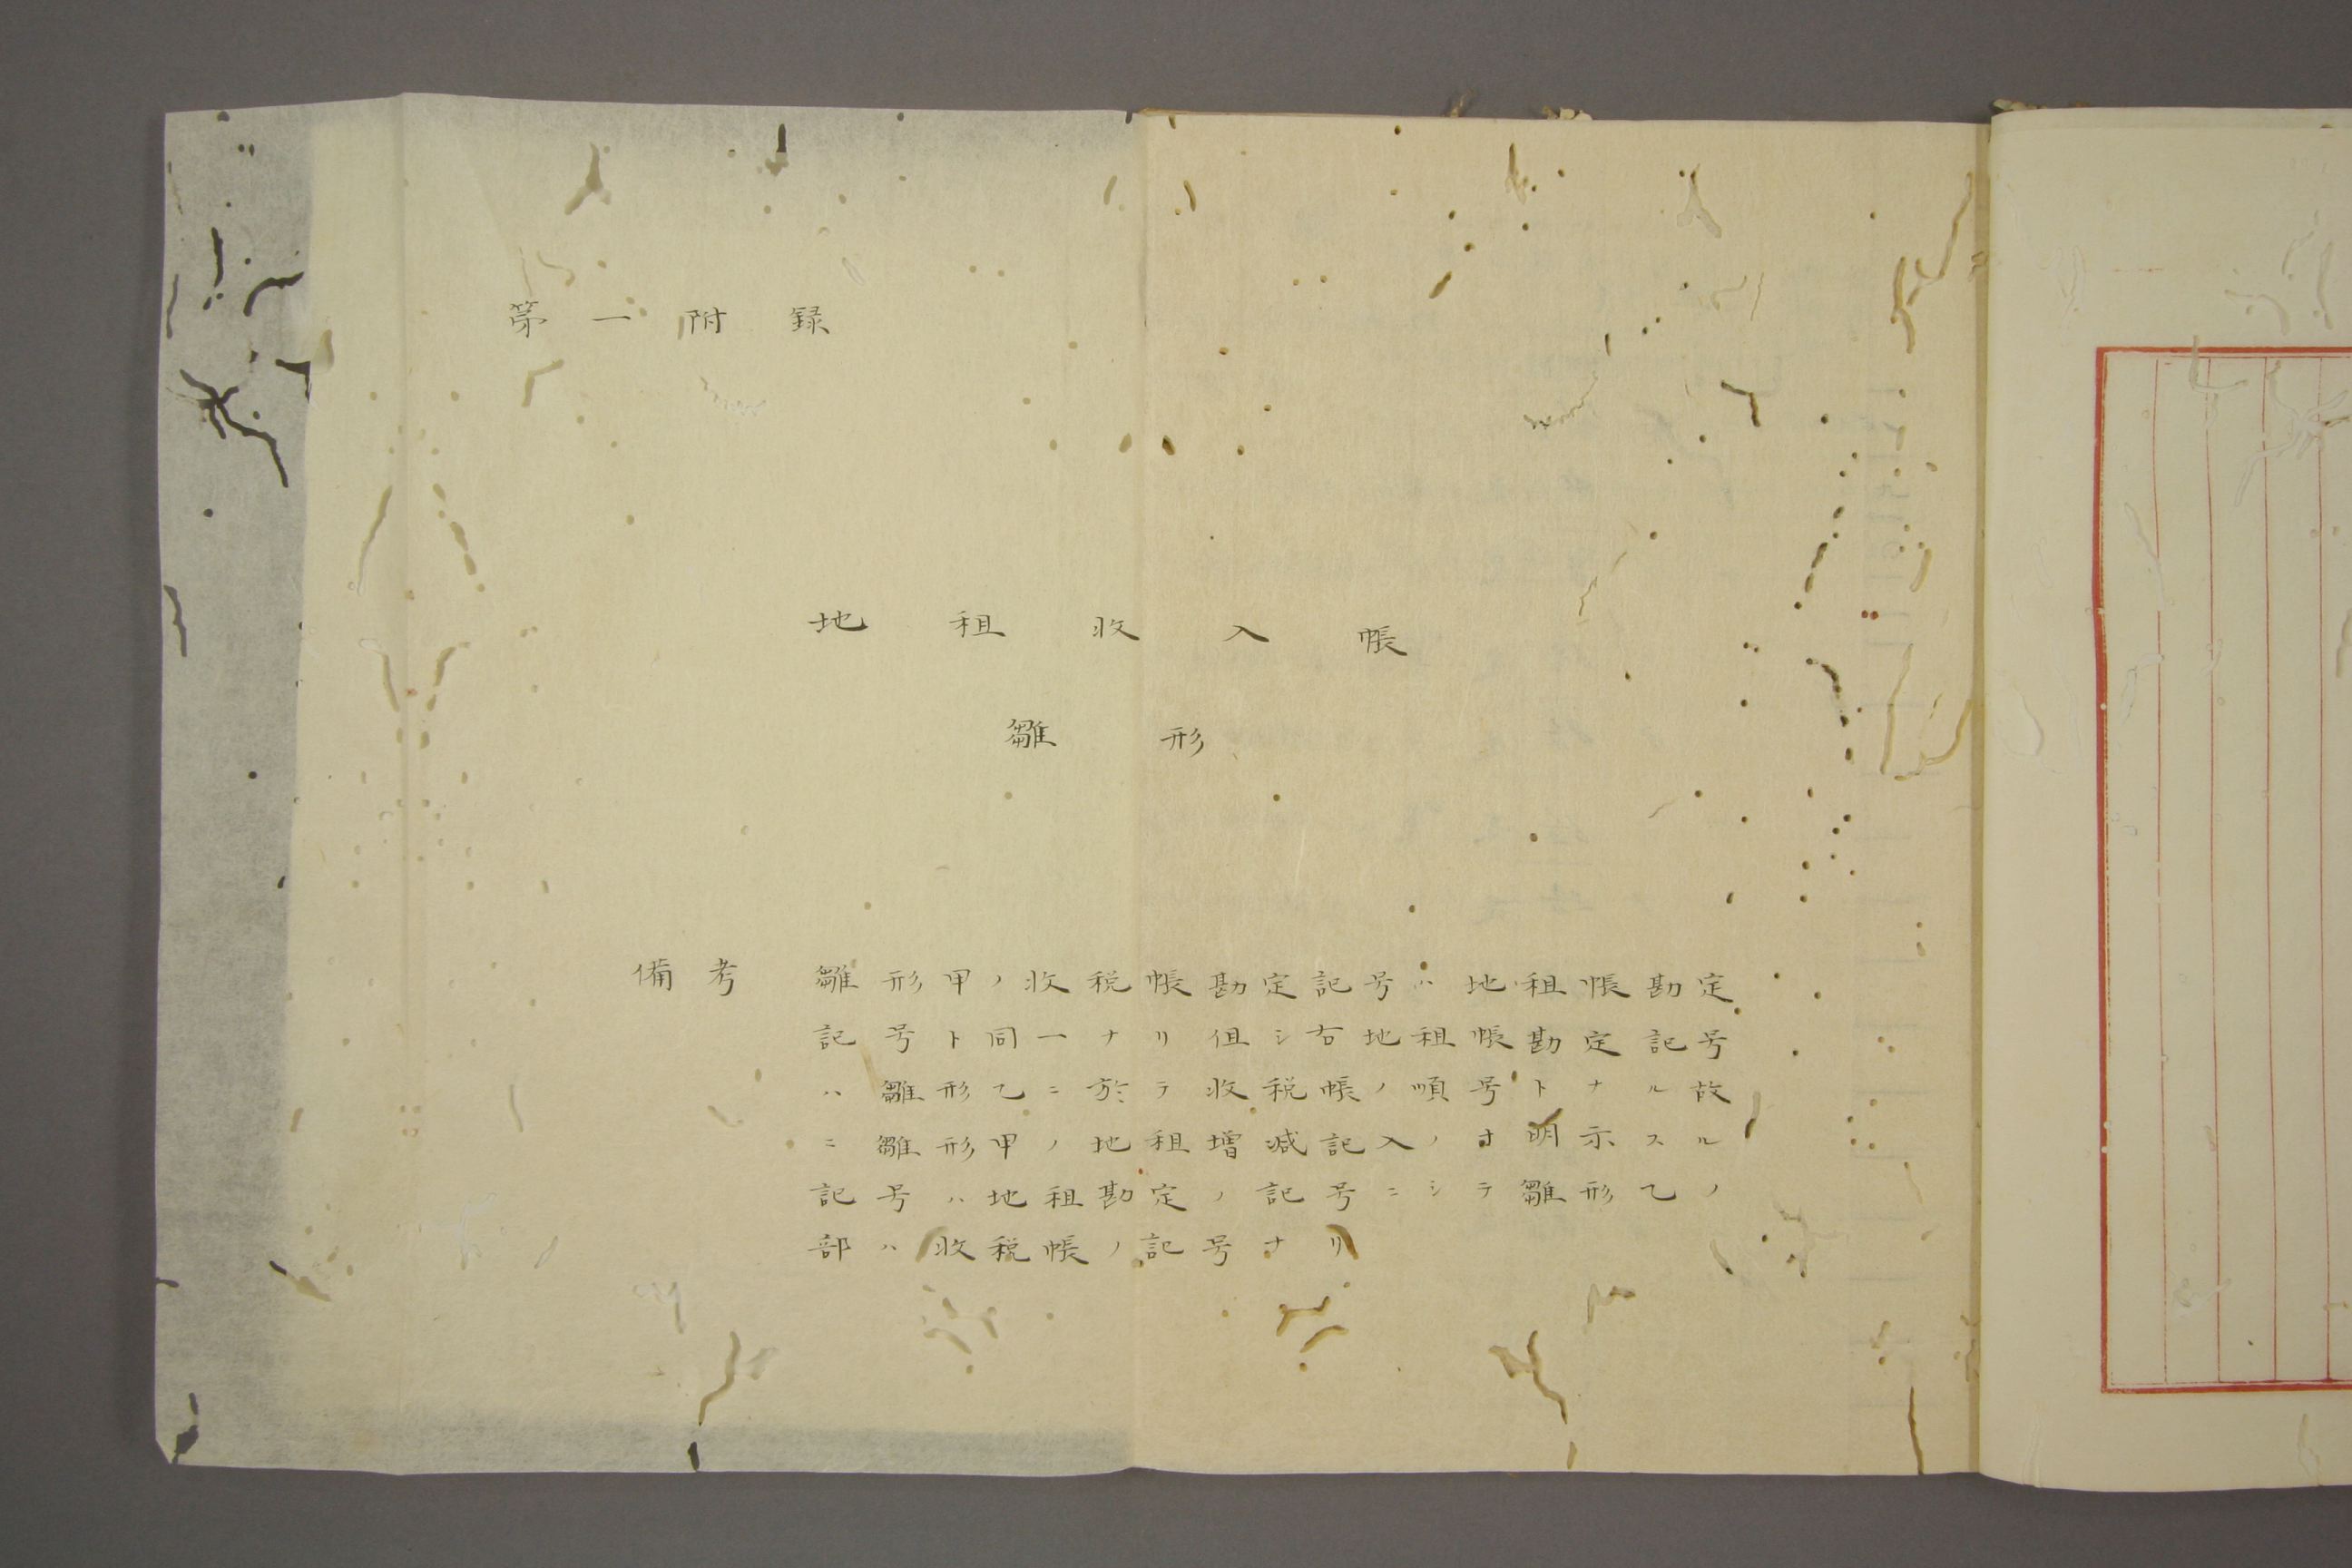 第一附録
地租收入帳
雛形
備考 雛形甲ノ收税帳勘定記号ハ地租帳勘定
記号ト同一ナリ但シ右地租帳勘定記号
ハ雛形乙ニ於テ收税帳ノ順号トナル故
ニ雛形甲ノ地租增减記入ノ明示スル
記号ハ地租勘定ノ記号ニシテ雛形乙ノ
部ハ收税帳ノ記号ナリ